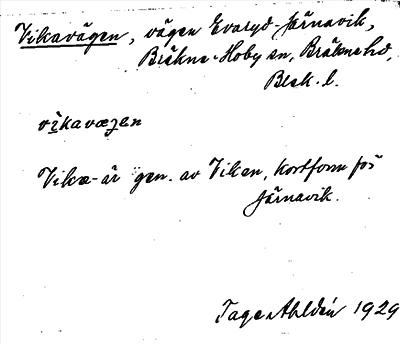 Vikavägen, vägen Evaryd-Järnavik,
Bräkne-Hoby sn, Bräknehd,
Blek. l.
vikavægen
Vika- är gen. av Viken, kortform för
Järnavik.
Tage Ahldén 1929